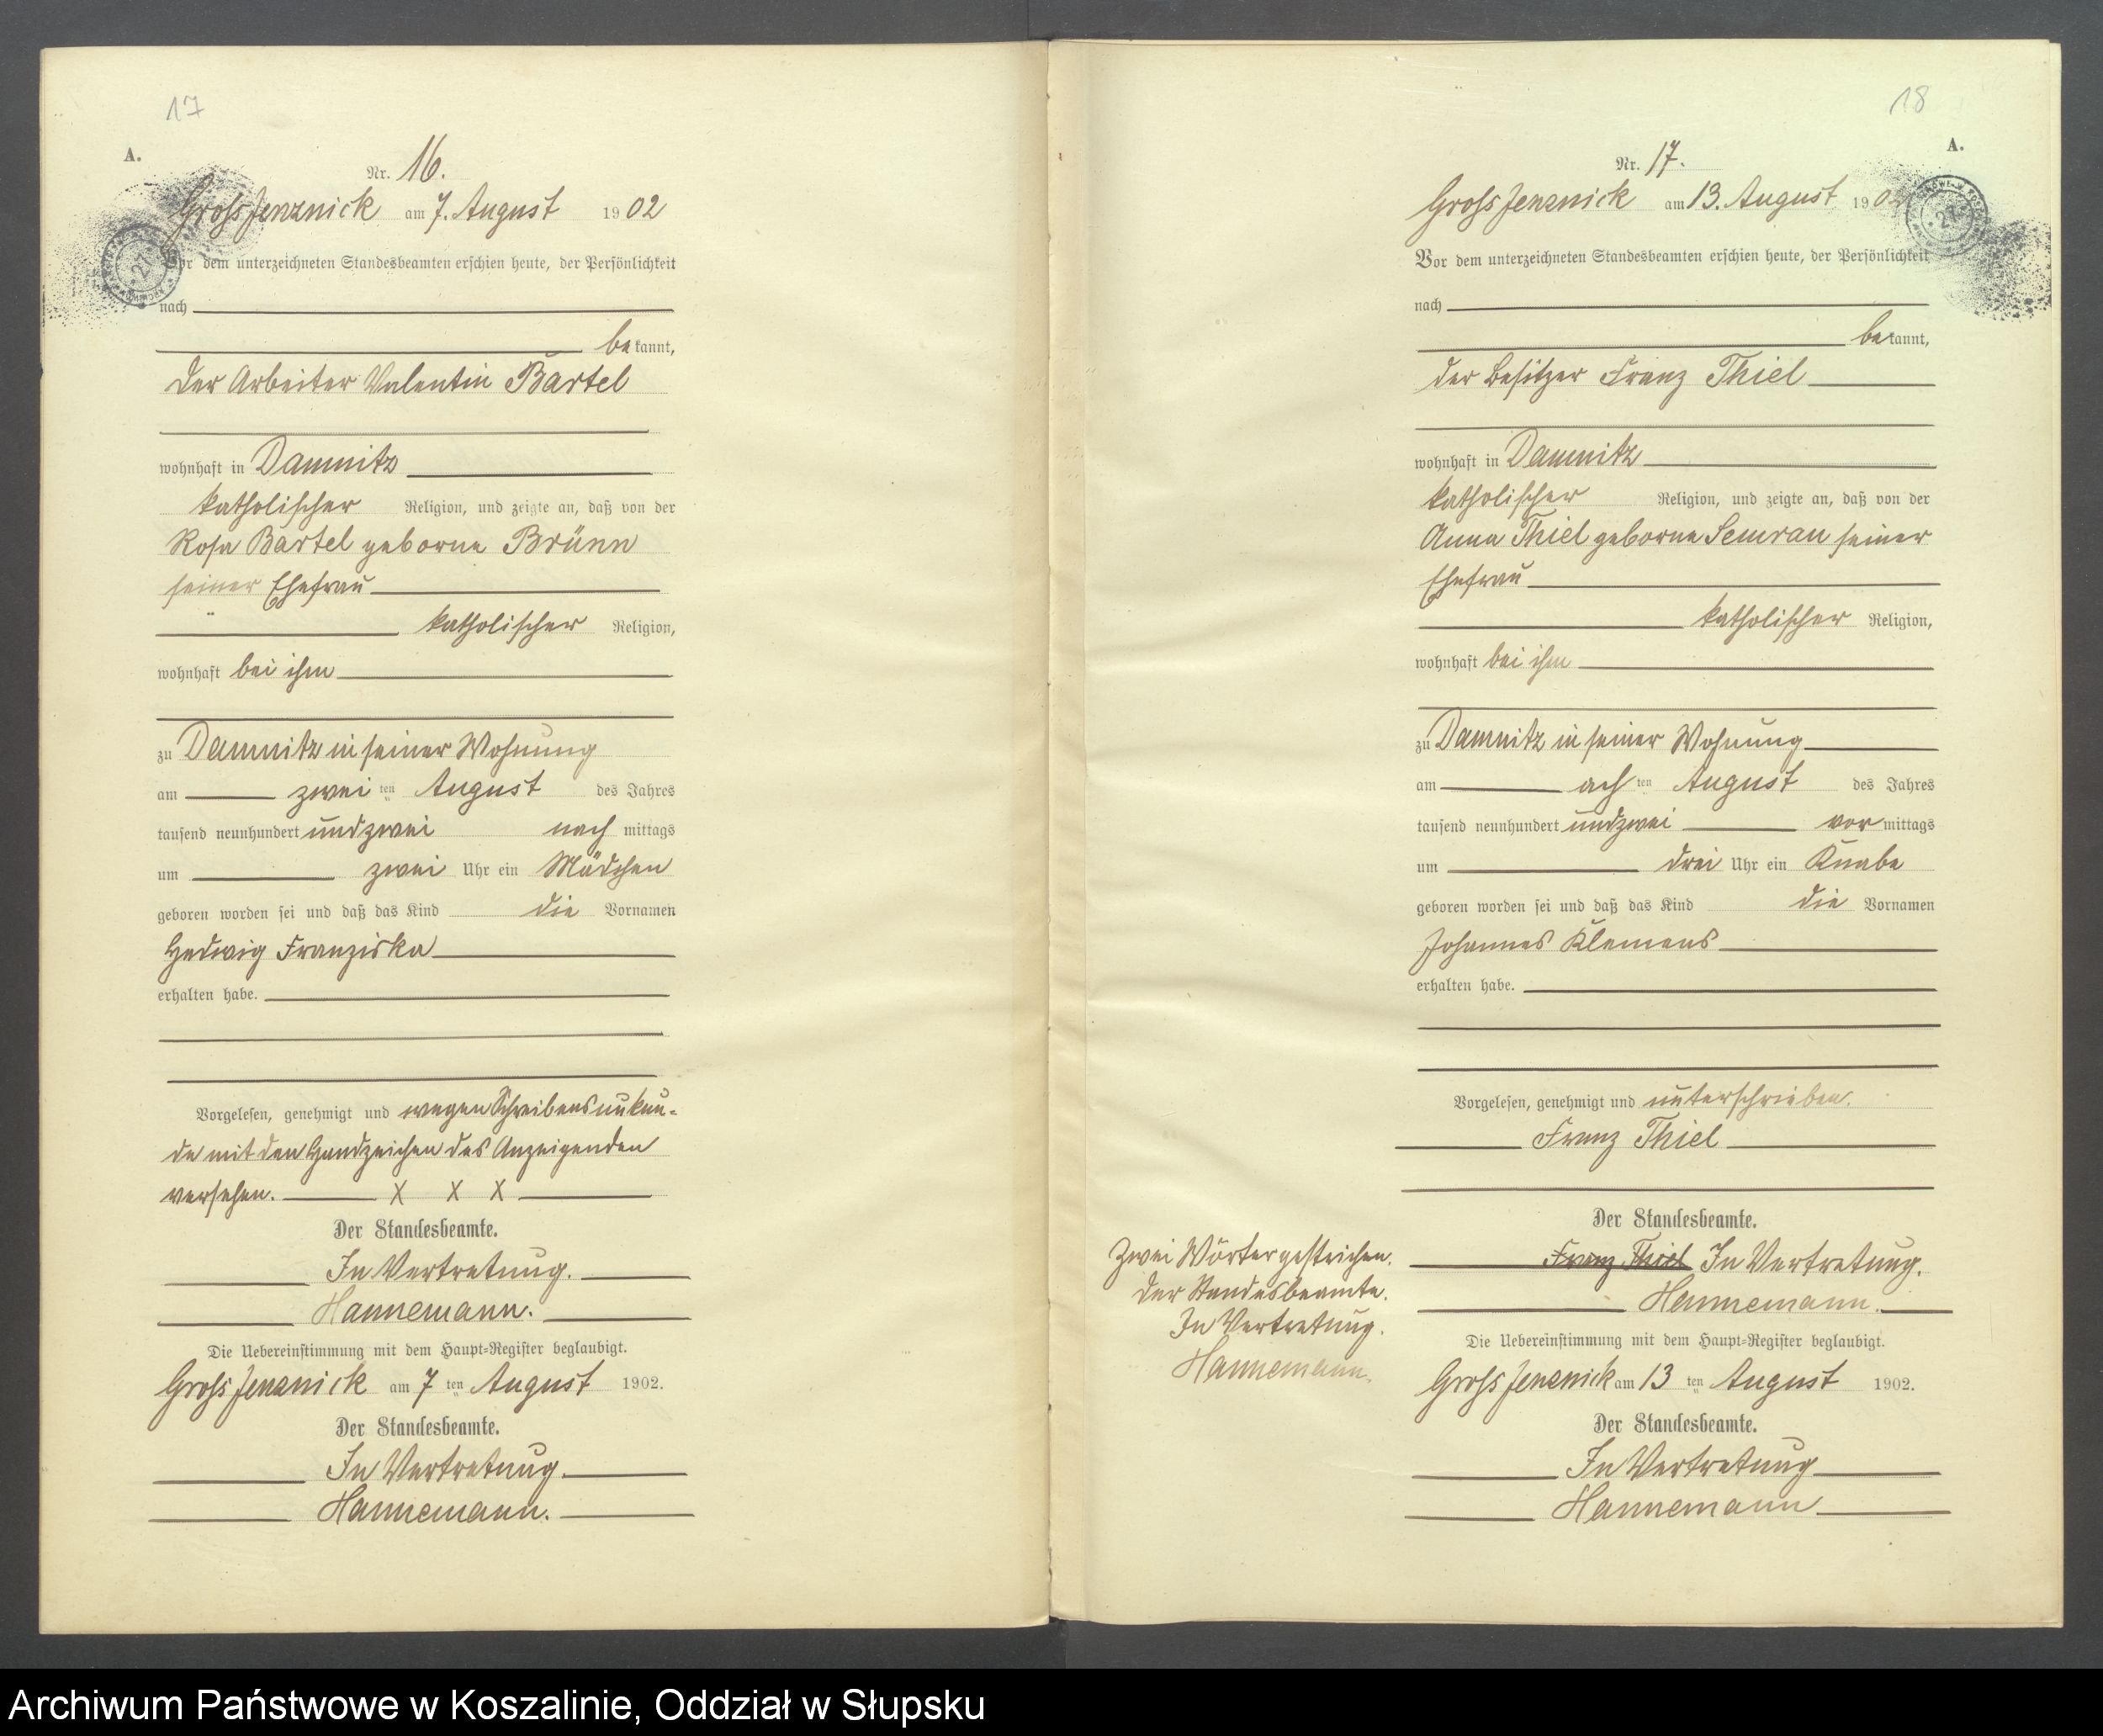 17
A.
Nr. 16.
Gross Jenznick am 7. August 1902
Vor dem unterzeichneten Standesbeamten erschien heute, der Persönlichkeit
nach
bekannt,
der Arbeiter Valentin Bartel
wohnhaft in Damnitz
katholischer Religion, und zeigte an, daß von der
Rosa Bartel geborne Brünn
seiner Ehefrau
katholischer Religion,
wohnhaft bei ihm
zu Damnitz in seiner Wohnung
am zweiten August des Jahres
tausend neunhundert und zwei nach mittags
um zwei Uhr ein Mädchen
geboren worden sei und daß das Kind die Vornamen
Hedwig Franziska
erhalten habe.
Vorgelesen, genehmigt und wegen Schreibensunkun-
de mit den Handzeichen des Anzeigenden
versehen. X X X
Der Standesbeamte.
In Vertretung.
Hannemann.
Die Uebereinstimmung mit dem Haupt-Register beglaubigt.
Gross Jenznick am 7ten August 1902.
Der Standesbeamte.
In Vertretung.
Hannemann.
18
A.
Nr. 17.
Gross Jenznick am 13. August 1902
Vor dem unterzeichneten Standesbeamten erschien heute, der Persönlichkeit
nach
bekannt,
der Besitzer Franz Thiel
wohnhaft in Damnitz
katholischer Religion, und zeigte an, daß von der
Anna Thiel geborne Semrau seiner
Ehefrau
katholischer Religion,
wohnhaft bei ihm
zu Damnitz in seiner Wohnung
am achten August des Jahres
tausend neunhundert und zwei vor mittags
um drei Uhr ein Knabe
geboren worden sei und daß das Kind die Vornamen
Johannes Klemens
erhalten habe.
Vorgelesen, genehmigt und unterschrieben.
Franz Thiel
Der Standesbeamte.
Franz Thiel In Vertretung.
Hannemann.
Zwei Wörter gestrichen.
Der Standesbeamte.
In Vertretung.
Hannemann.
Die Uebereinstimmung mit dem Haupt-Register beglaubigt.
Gross Jenznick am 13ten August 1902.
Der Standesbeamte.
In Vertretung
Hannemann
Archiwum Państwowe w Koszalinie, Oddział w Słupsku